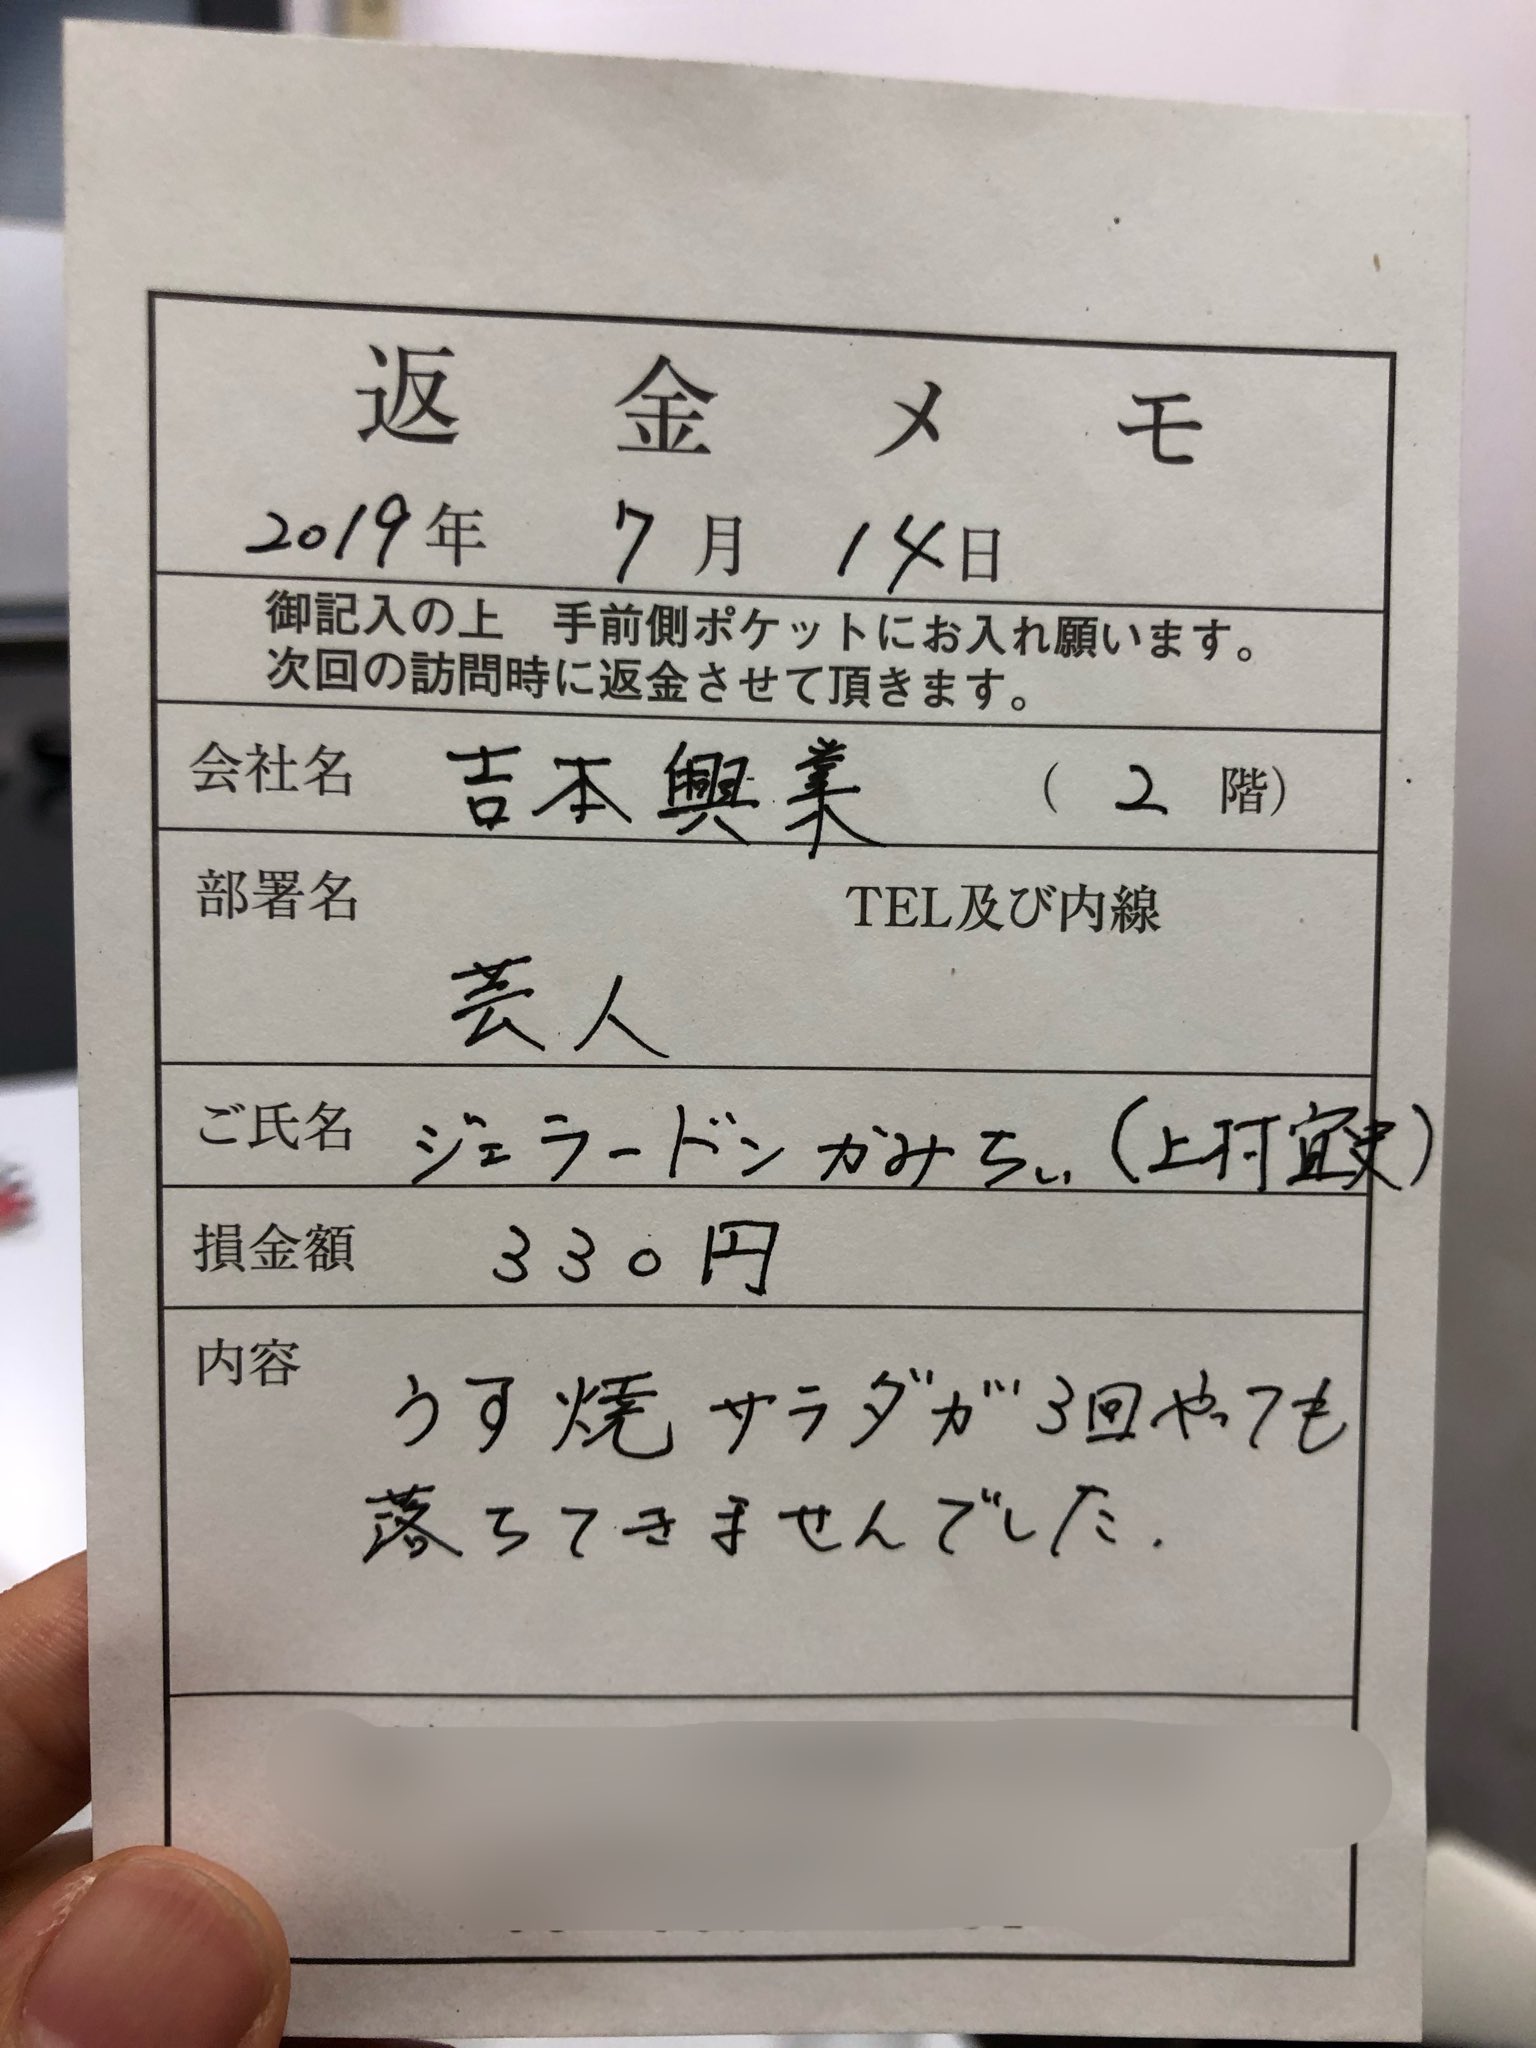 返金メモ
2019年 7月 14日
御記入の上　手前側ポケットにお入れ願います。
次回の訪問時に返金させて頂きます。
会社名 吉本興業 (2階)
部署名 TEL及び内線
芸人
ご氏名 ジェラードン かみちぃ (上村宜史)
損金額 330円
内容
うす焼サラダが3回やっても
落ちてきませんでした.